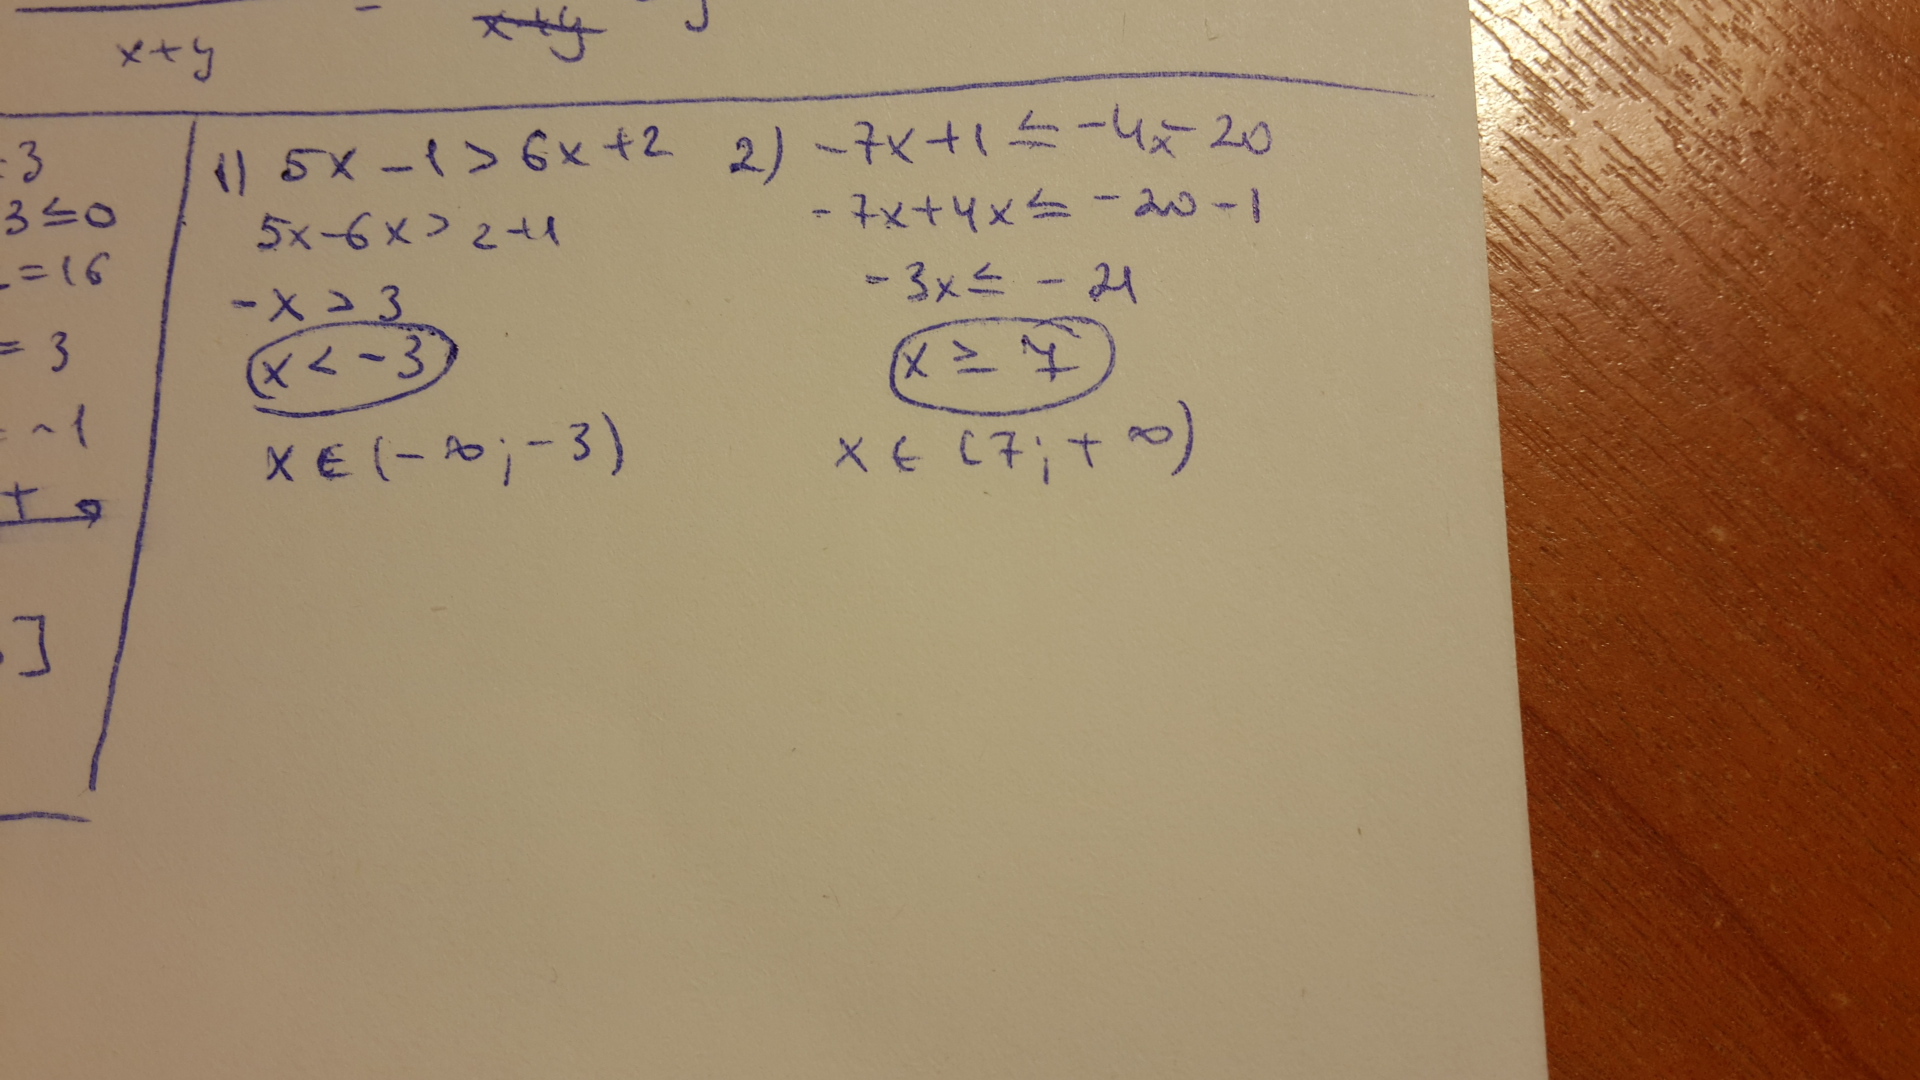 x+y
x+y
:3
3≤0
=16
= 3
= -1
+
]
1) 5x-1>6x+2
5x-6x>2+1
-x>3
x<-3
x∈(-∞;-3)
2) -7x+1≤-4x-20
-7x+4x≤-20-1
-3x≤-21
x≥7
x∈[7;+∞)